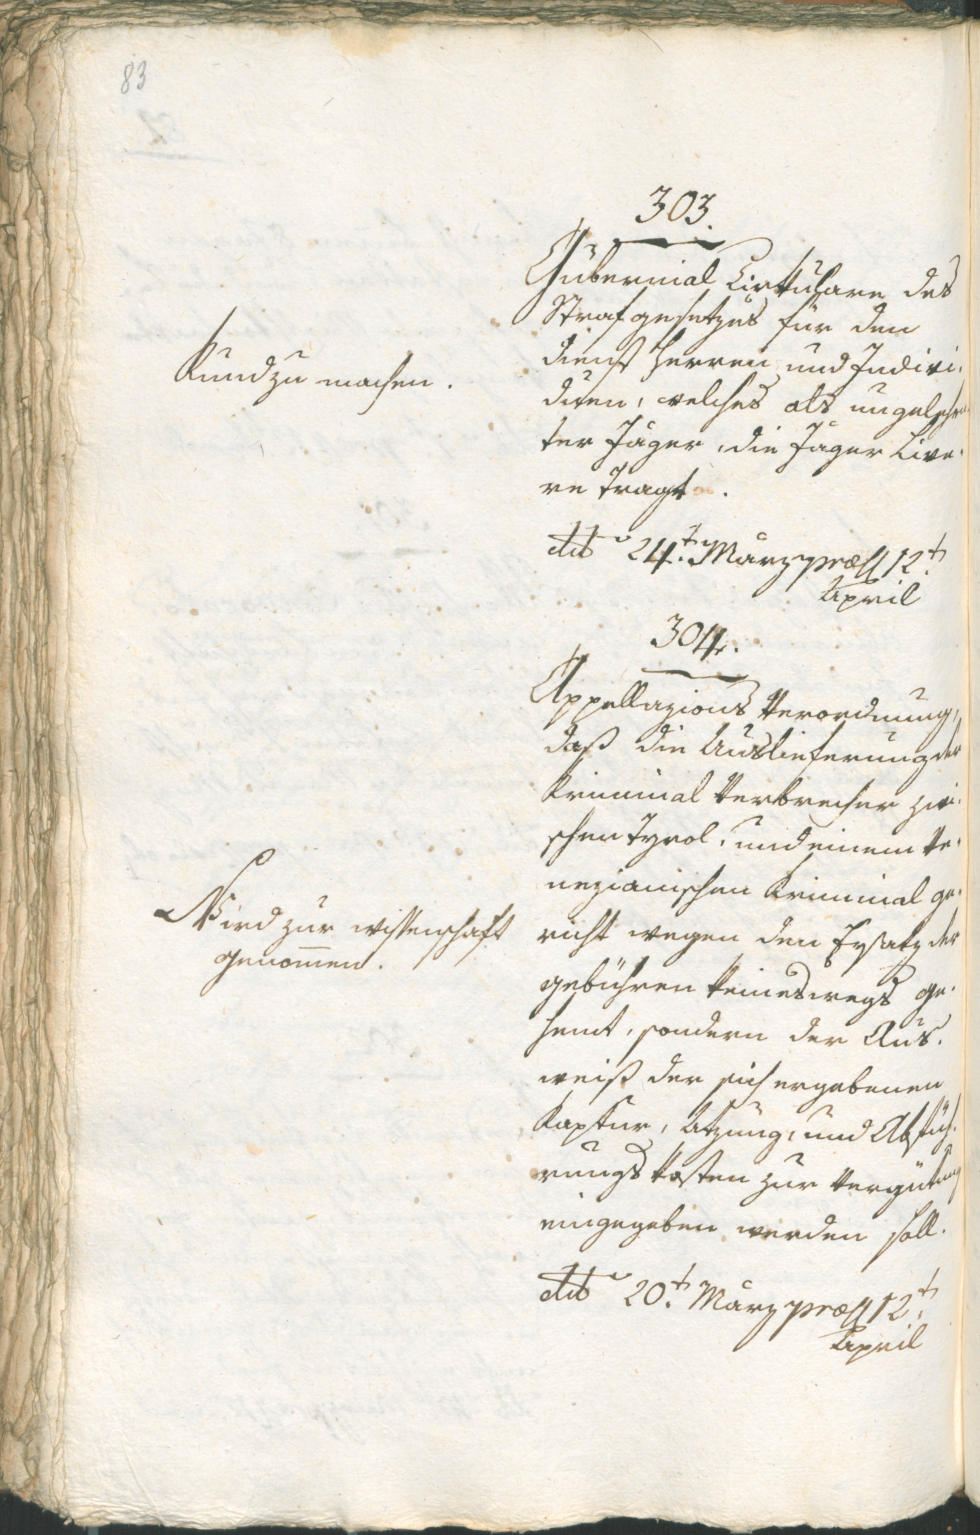 83
303.
Gubernial Cirkulare des
Strafgesetzes für den
dienst Herren und Indivi-
duen, welches als ungelehr-
ter Jäger, die Jäger Live-
re tragt.
Kund zu machen.
ddto 24t. März præs 12t.
April
304.
Appellazions Verordnung,
daß die Auslieferung der
Kriminal Verbrecher zwi-
schen Tyrol, und einem Ve-
nezianischen Kriminal ge-
richt wegen den Ersatz der
gebühren keineswegs ge-
hemt, sondern der Aus-
weiß der sich ergebenen
Kaptur, Atzung, und Abfüh-
rungs kosten zur Vergütung
eingegeben werden soll.
Wird zur wissenschaft
genom̅en.
ddto 20t. März præs 12t.
April